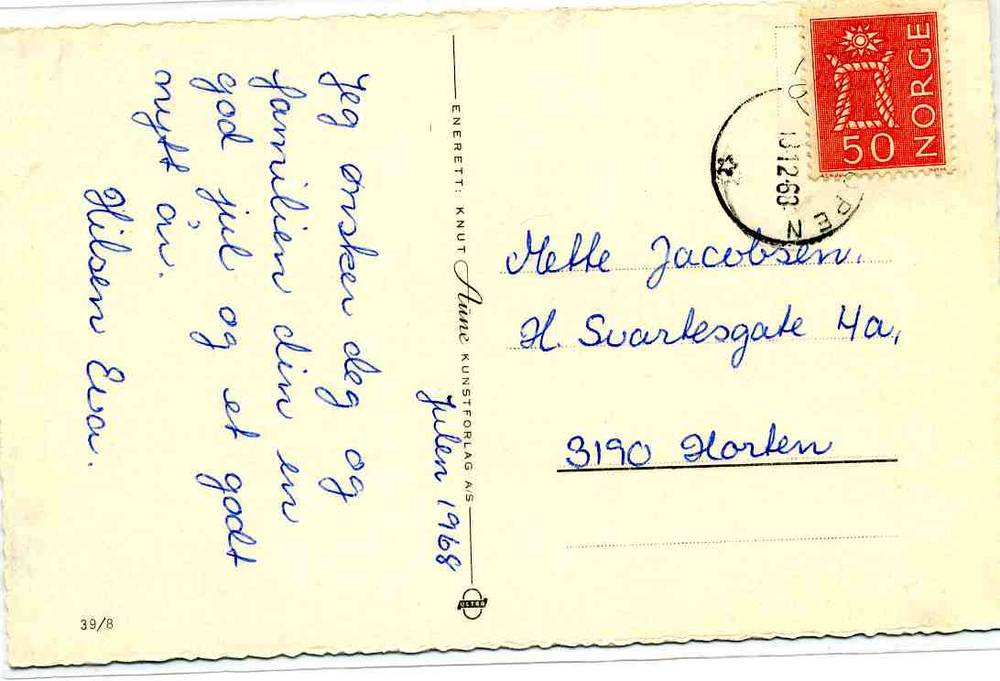 Julen 1968
Jeg ønsker deg og
familien din en
god jul og et godt
nytt år.
Hilsen Eva.
ENERETT: KNUT Aune KUNSTFORLAG A/S
ULTRA
39/8
NORGE
50
13.12.68
OPEN
Mette Jacobsen.
H. Svartesgate 4a,
3190 Horten